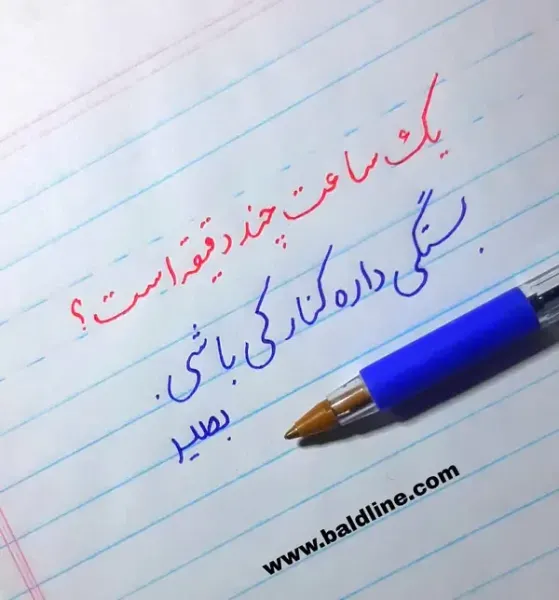 یک ساعت چند دقیقه است؟
بستگی داره کنار کی باشی.
بصیر
www.baldline.com